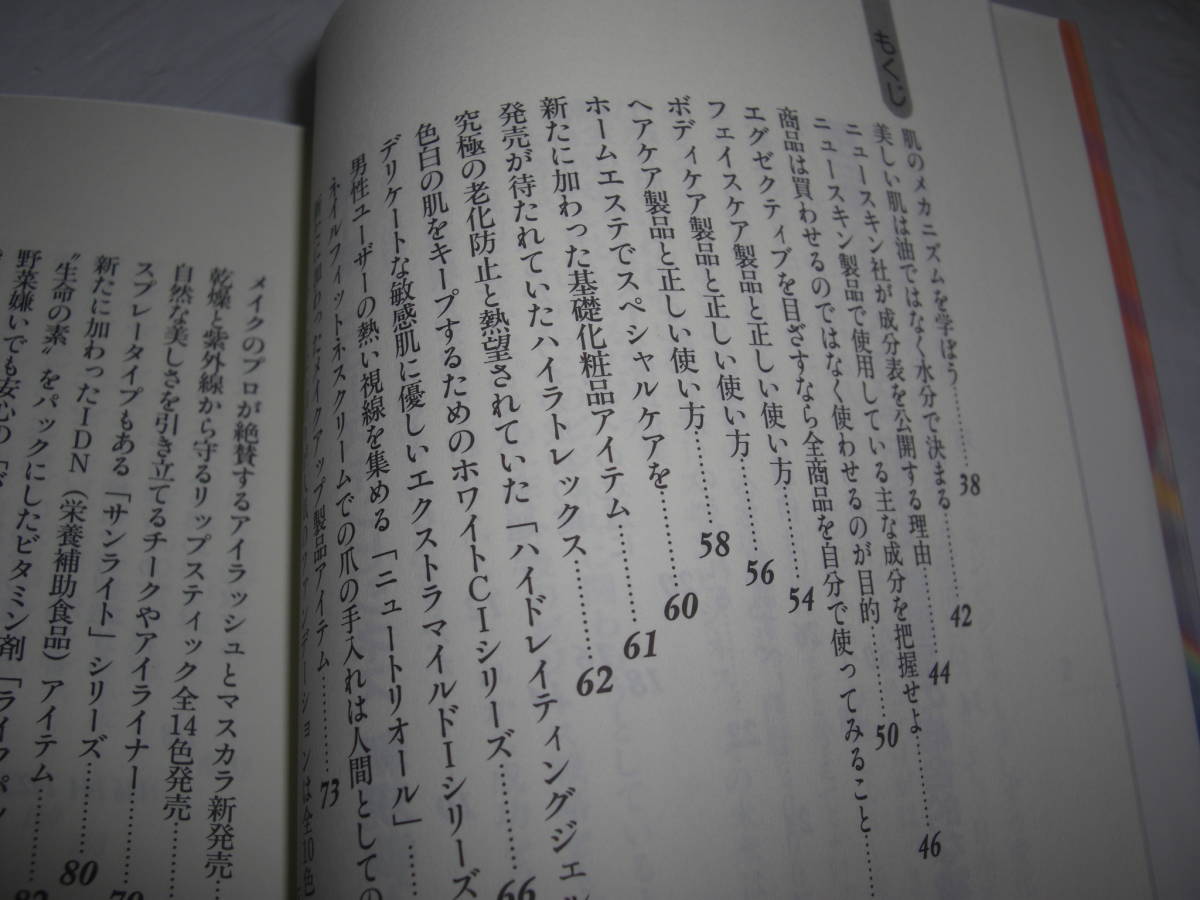 もくじ
肌のメカニズムを学ぼう…………38
美しい肌は油ではなく水分で決まる…………42
ニュースキン社が成分表を公開する理由…………44
ニュースキン製品で使用している主な成分を把握せよ…………46
商品は買わせるのではなく使わせるのが目的…………50
エグゼクティブを目ざすなら全商品を自分で使ってみること…………
フェイスケア製品と正しい使い方…………54
ボディケア製品と正しい使い方…………56
ヘアケア製品と正しい使い方…………58
ホームエステでスペシャルケアを…………60
新たに加わった基礎化粧品アイテム…………61
発売が待たれていたハイラトレックス…………62
究極の老化防止と熱望されていた「ハイドレイティングジェル
色白の肌をキープするためのホワイトCIシリーズ…………66
デリケートな敏感肌に優しいエクストラマイルドIシリーズ
男性ユーザーの熱い視線を集める「ニュートリオール」……
ネイルフィットネスクリームでの爪の手入れは人間としての
新たに加わったメイクアップ製品アイテム…………73
ファンデーションは全10色
メイクのプロが絶賛するアイラッシュとマスカラ新発売……
乾燥と紫外線から守るリップスティック全14色発売……
自然な美しさを引き立てるチークやアイライナー……
スプレータイプもある「サンライト」シリーズ…………79
新たに加わったIDN（栄養補助食品）アイテム…………80
〝生命の素〟をパックにしたビタミン剤「ライフパッ
野菜嫌いでも安心の